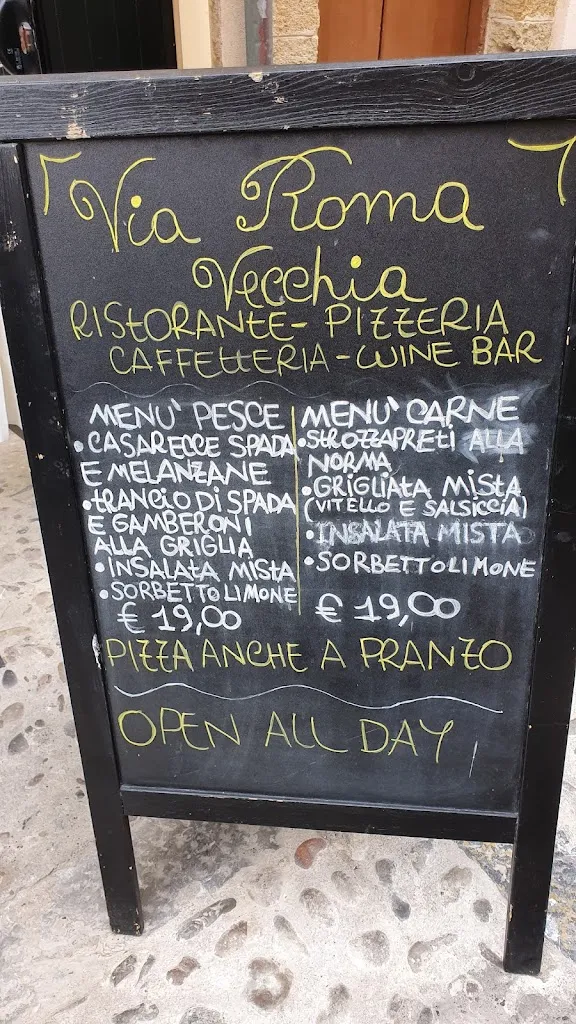 Via Roma
Vecchia
RISTORANTE- PIZZERIA
CAFFETTERIA-WINE BAR
MENU' PESCE
• CASARECCE SPADA
E MELANZANE
• TRANCIO DI SPADA
E GAMBERONI
ALLA GRIGLIA
• INSALATA MISTA
• SORBETTO LIMONE
€ 19,00
MENU' CARNE
• STROZZAPRETI ALLA
NORMA
• GRIGLIATA MISTA
(VITELLO E SALSICCIA)
• INSALATA MISTA
• SORBETTO LIMONE
€ 19,00
PIZZA ANCHE A PRANZO
OPEN ALL DAY